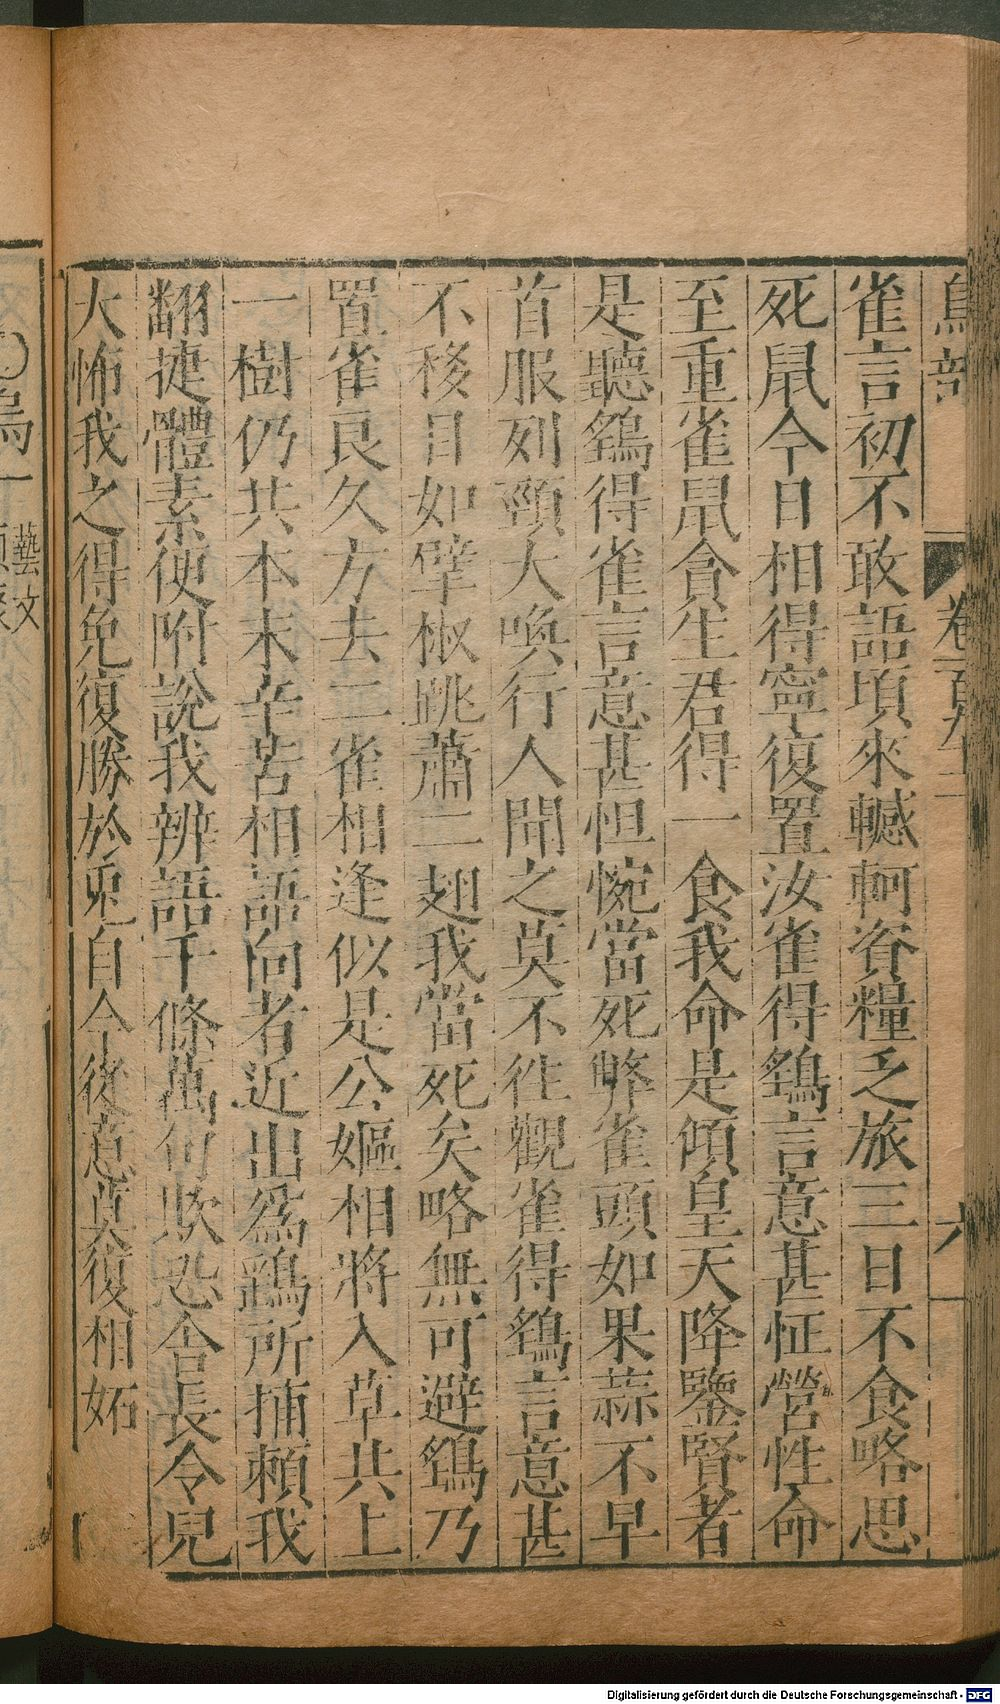 鳥部 卷一百九十二 六
雀言初不敢語頃來轗軻資糧乏旅三日不食略思
死鼠今日相得寧復置汝雀得鷂言意甚怔營性命
至重雀鼠貪生君得一食我命是傾皇天降鑒賢者
是聽鷂得雀言意甚怛惋當死弊雀頭如果蒜不早
首服列頸大喚行人聞之莫不徃觀雀得鷂言意甚
不移目如擘椒跳蕭二翅我當死矣略無可避鷂乃
置雀良久方去二雀相逢似是公嫗相將入草共上
一樹仍共本末辛苦相語向者近出爲鷂所捕賴我
翻捷體素便附說我辨語千條萬句欺恐舍長令兒
大怖我之得免復勝於兎自今後意莫復相妬
烏一
藝文
Digitalisierung gefördert durch die Deutsche Forschungsgemeinschaft - DFG